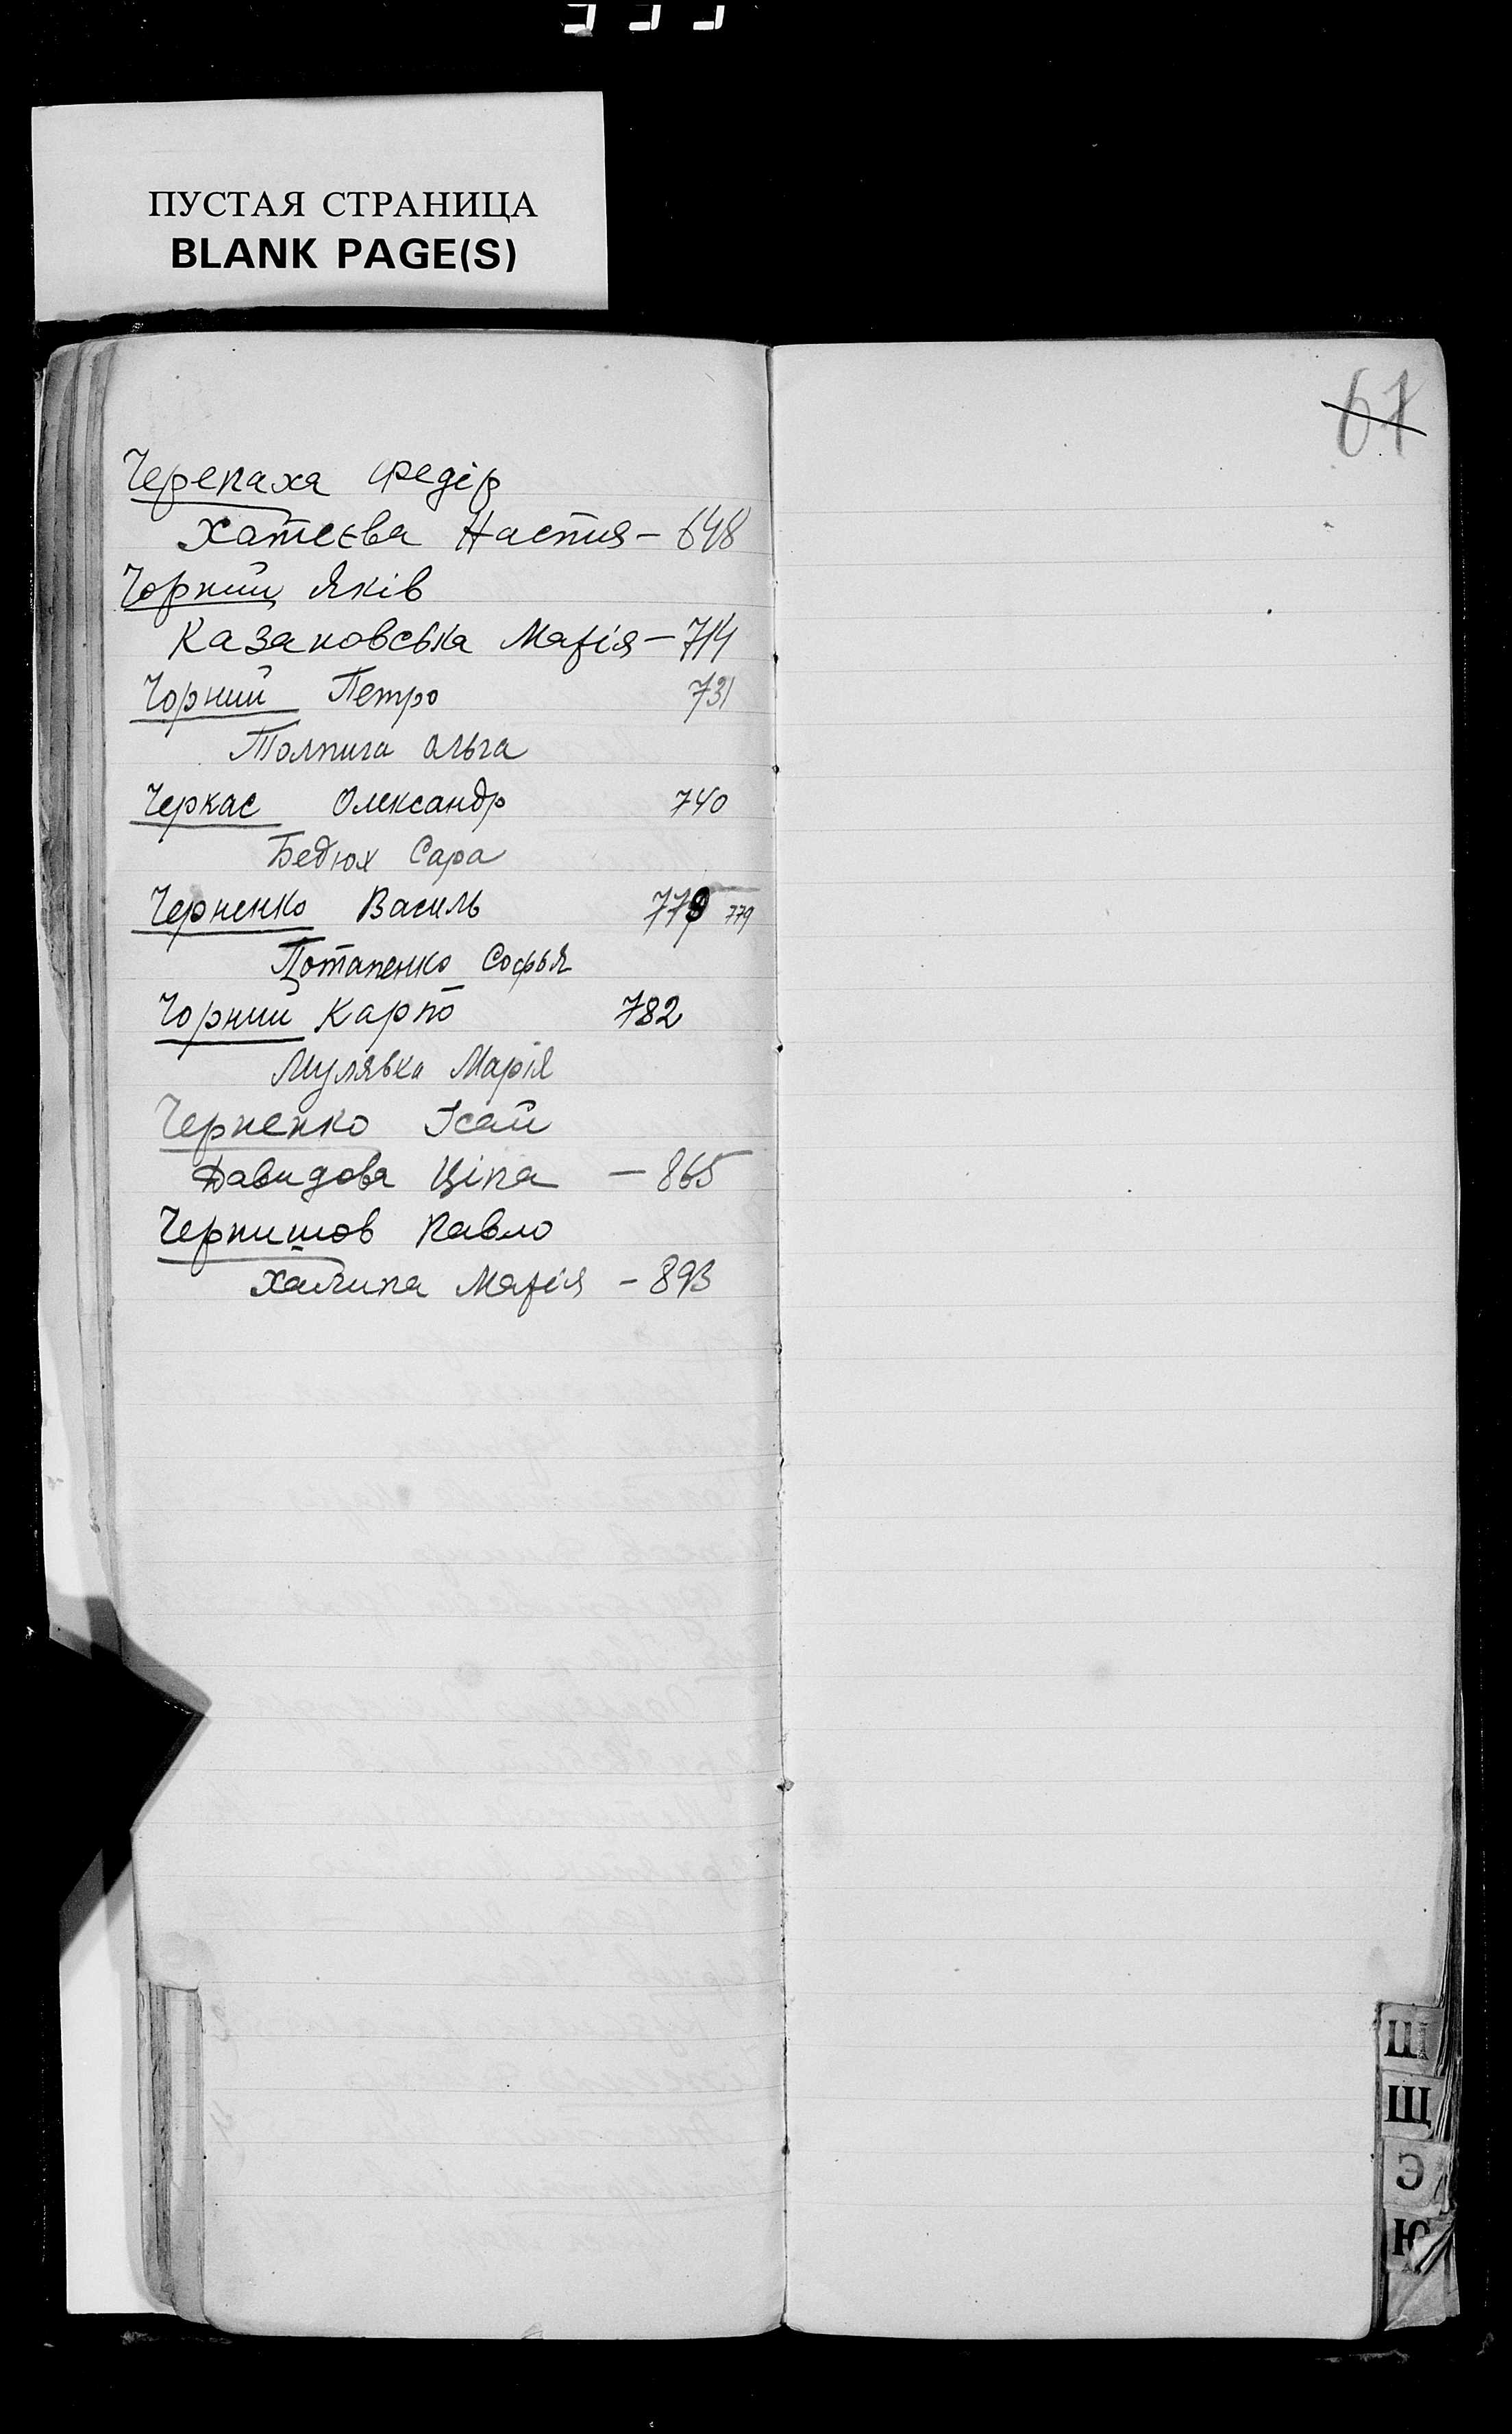 ПУСТАЯ СТРАНИЦА
BLANK PAGE(S)
67
Черепаха Федір
Хатеєва Настя - 648
Чорний Яків
Казановська Марія - 714
Чорний Петро 731
Толпига Ольга
Черкас Олександр 740
Бедюх Сара
Черненко Василь 779 779
Потапенко Софья
Чорний Карпо 782
Мулявка Марія
Черненко Ісай
Давидова Ціпа - 865
Чернишов Павло
Халипа Марія - 893
Ш
Щ
Э
Ю